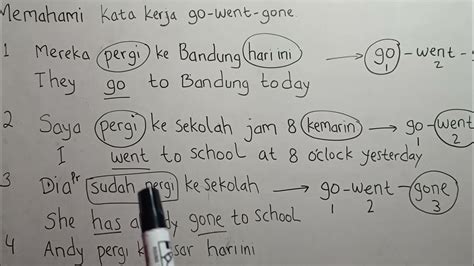 Memahami kata kerja go-went-gone
1 Mereka pergi ke Bandung hari ini → go-went-
1 2
They go to Bandung today
2 Saya pergi ke sekolah jam 8 kemarin → go-went
1 2
I went to school at 8 o'clock yesterday
3 Dia Pr sudah pergi ke sekolah → go-went-gone
1 2 3
She has gone to school
4 Andy pergi hari ini